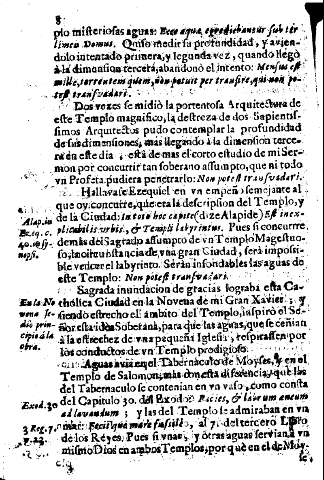 8
plo misteriosas aguas: Ecce aqua egrediebantur subter
limen Domus. Quiso medir su profundidad, y avien-
dolo intentado primera, y segunda vez, quando llegò
à la dimension tercera, abandonò el intento: Mensus est
mille, torrentem quem, non potui per transire, qui non po-
test transvadari.
Dos vezes se midiò la portentosa Arquitectura de
este Templo magnifico, la destreza de dos Sapientis-
simos Arquitectos pudo contemplar la profundidad
de sus dimensiones, mas llegando à la dimension terce-
ra en este dia, està de mas el corto estudio de mi Ser-
mon por concurrir tan soberano assumpto, que ni todo
vn Profeta pudiera penetrarlo: Non potest transvadari.
Hallavase Ezequiel en vn empeño semejante al
que oy concurre, que era la description del Templo, y
de la Ciudad: In toto hoc capite (dize Alapide) Est inex-
plicabilis orbis, & Templi labyrintus. Pues si concurre,
demàs del Sagrado assumpto de vn Templo Magestuo-
so, la circunstancia de vna gran Ciudad, serà imposi-
ble vencer el labyrinto. Seràn insondables las aguas de
este Templo: Non potest transvadari.
Alap. in
Ezeq. c.
40. in sy-
nopsi.
Sagrada inundacion de gracias lograba esta Ca-
tholica Ciudad en la Novena de mi Gran Xavier; y
siendo estrecho el ambito del Templo, inspirò el Se-
ñor esta idea Soberana, para que las aguas, que se ceñian
à la estrechez de vna pequeña Iglesia, respirassen por
los conductos de vn Templo prodigioso.
En la No
vena se
diò prin-
cipio à la
obra.
Aguas avia en el Tabernaculo de Moyses, y en el
Templo de Salomon; mas con esta diferencia, que las
del Tabernaculo se contenian en vn vaso, como consta
del Capitulo 30. del Exodo: Facies, & labrum aneum
ad lavandum; y las del Templo se admiraban en vn
mar: Fecit quoque mare fusile, al 7. del tercero Libro
de los Reyes. Pues si vnas, y otras aguas servian à vn
mismo Dios en ambos Templos, por què en el de Moy-
Exod. 30
3 Reg. 7.
v. 23.